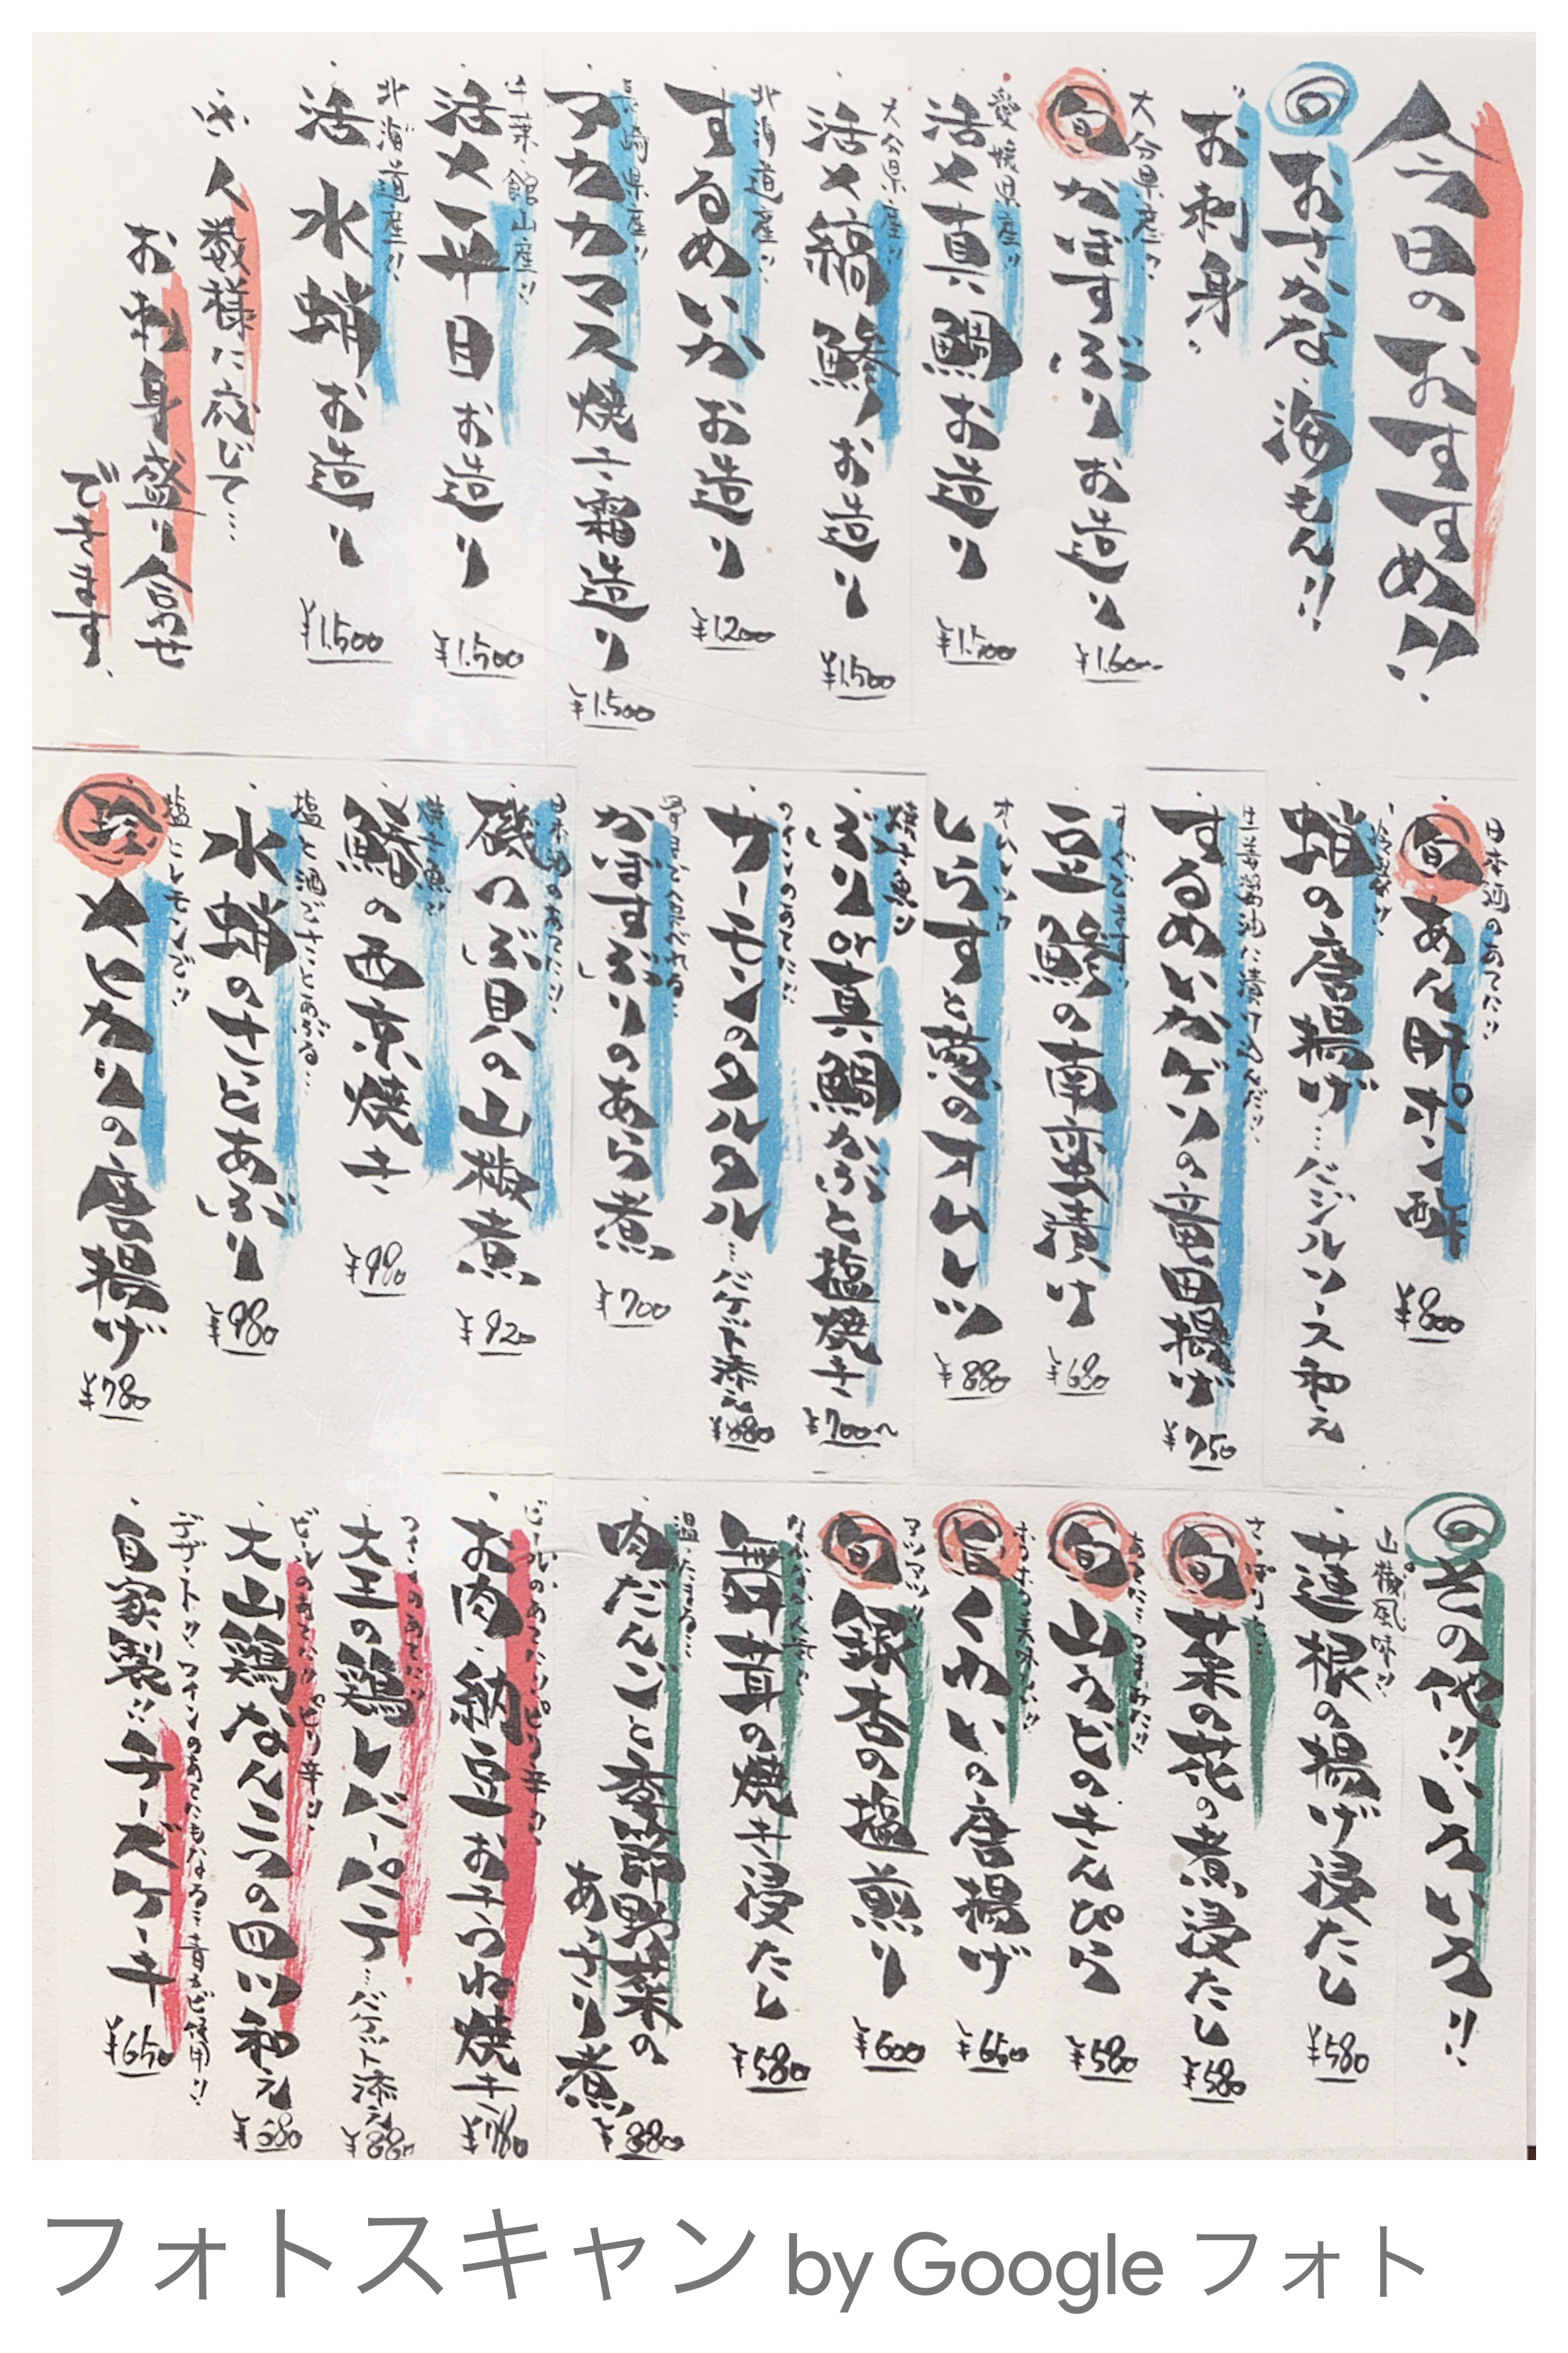 今日のおすすめ!!
の おさかな、海もん!!
お刺身、
大分県産!!
旬 かぼすぶりお造り ¥1.600
愛媛県産!!
活〆真鯛お造り ¥1.500
大分県産!!
活〆縞鯵お造り ¥1.500
北海道産!!
するめいかお造り ¥1200
長崎県産!!
アカカマス焼き霜造り ¥1.500
千葉、館山産!!
活〆平目お造り ¥1.500
北海道産!!
活 水蛸お造り ¥1.500
人数様に応じて…
お刺身盛り合せ
できます、
日本酒のあてに!!
旬 あん肝ポン酢 ¥800
蛸の唐揚げ…バジルソース和え
生姜醤油に漬け込んで!!
するめいかゲソの竜田揚げ ¥750
すぐでます!!
豆鯵の南蛮漬け ¥680
しらすと葱のオムレツ ¥880
焼き魚!!
ぶりor真鯛かぶと塩焼き ¥700〜
ワインのあてに!!
サーモンのタルタル…バゲット添え ¥880
かぼすぶりのあら煮 ¥700
日本酒のあてに!!
磯つぶ貝の山椒煮 ¥920
焼き魚!!
鰆の西京焼き ¥980
塩と酒でさっとあがる…
水蛸のさっとあぶり ¥980
塩とレモンで!!
珍 メヒカリの唐揚げ ¥780
の その他!!いろいろ!!
山椒風味!!
蓮根の揚げ浸たし ¥580
さっぱりと…
旬 菜の花の煮浸たし ¥580
旬 山うどのきんぴら ¥580
ホクホク美味い!!
旨 くわいの唐揚げ ¥650
アツアツ!!
旬 銀杏の塩煎り ¥600
舞茸の焼き浸たし ¥580
温たまる…
肉だんごと季節野菜の
あっさり煮 ¥880
ビールのあてに!!ピリ辛!!
お肉、納豆おきつね焼き ¥780
ワインのあてに!!
大山鶏レバーパテ…バゲット添え ¥880
ビールのあてに!!ピリ辛!!
大山鶏なんこつの四川和え ¥680
デザート!!ワインのあてにもなる…青カビ使用!!
自家製!!チーズケーキ ¥650
フォトスキャン by Google フォト